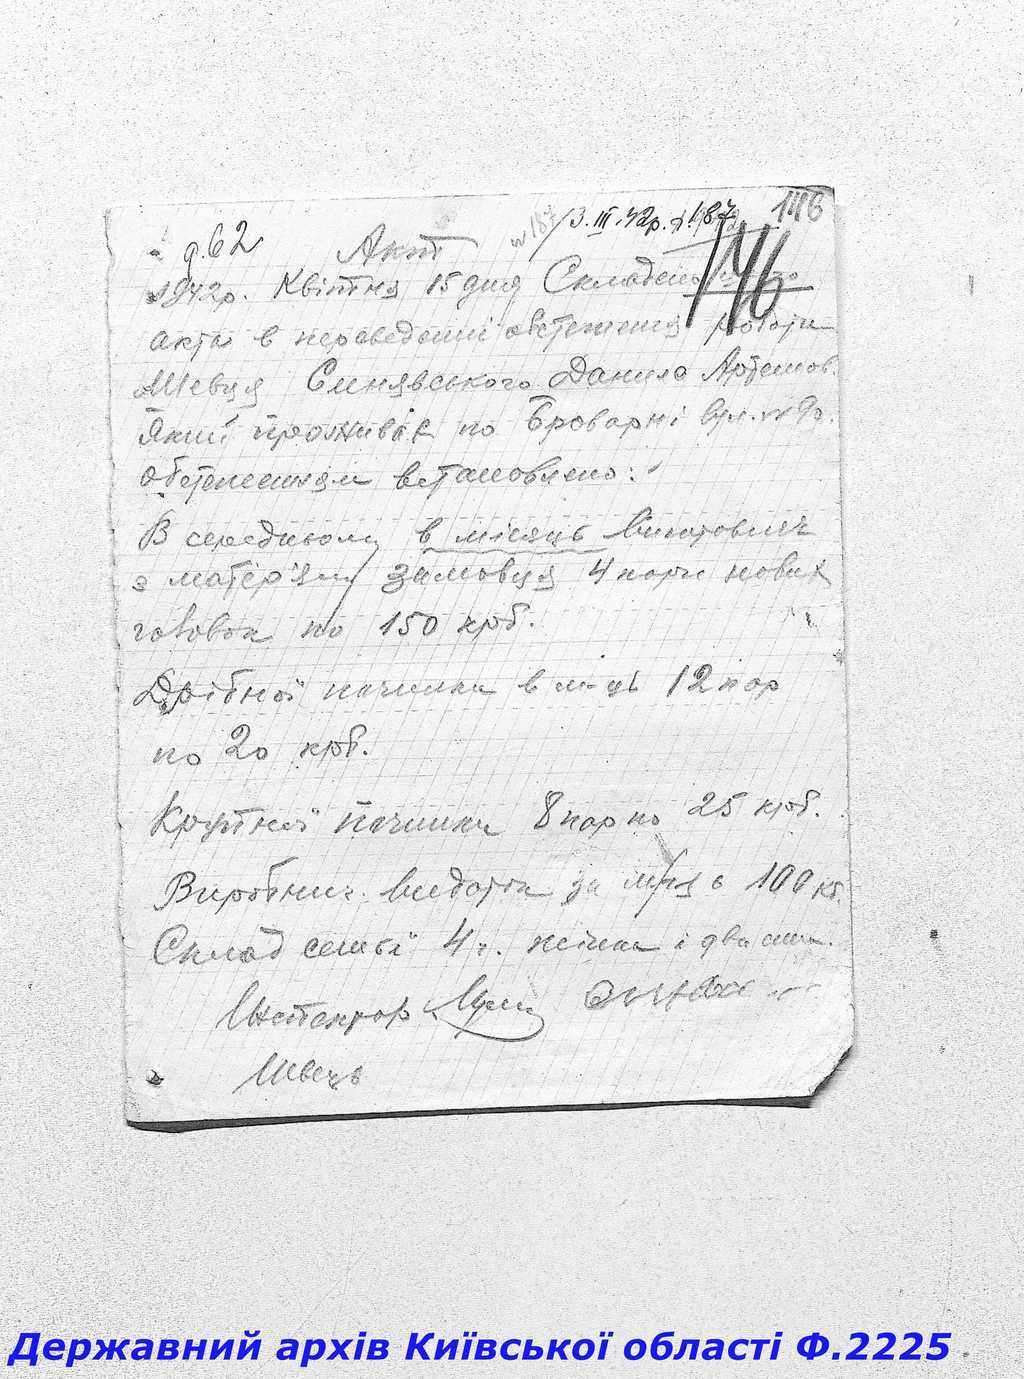 146
13.III.42р. д.187
д.62
Акт
146
1942р. Квітня 15 дня Складено
акта в переведенні обстеження роботи
Шевця Синявського Данила Артемов.
Який проживає по Броварні вул. №
обстеженням встановлено:
В середньому в місяць
з матер'ялу замовця 4 пари нових
головок по 150 крб.
Дрібної починки в м-ць 12 пар
по 20 крб.
Крупної починки 8 пар по 25 крб.
Виробнич. видатки за 100 кб.
Склад семьї 4 ч. жінка і два сини.
Інспектор
Швець
Державний архів Київської області Ф.2225